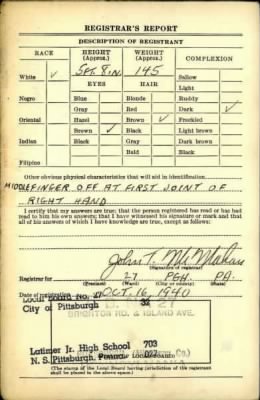 REGISTRAR'S REPORT
DESCRIPTION OF REGISTRANT
RACE HEIGHT (Approx.) WEIGHT (Approx.) COMPLEXION
White ✓ 5 FT. 8 IN. 145 Sallow
EYES HAIR Light
Negro Blue Blonde Ruddy
Gray Red Dark ✓
Oriental Hazel Brown ✓ Freckled
Brown ✓ Black Light brown
Indian Black Gray Dark brown
Bald Black
Filipino
Other obvious physical characteristics that will aid in identification
MIDDLE FINGER OFF AT FIRST JOINT OF
RIGHT HAND
I certify that my answers are true; that the person registered has read or has had
read to him his own answers; that I have witnessed his signature or mark and that
all of his answers of which I have knowledge are true, except as follows:
John T. McMahon
(Signature of registrar)
Registrar for 27 PGH. PA.
(Precinct) (Ward) (City or county) (State)
Date of registration OCT. 16, 1940
Local Board No.
City of Pittsburgh
BRIGHTON RD. & ISLAND AVE.
Latimer Jr. High School 703
N. S. Pittsburgh, 003
(The stamp of the Local Board having jurisdiction of the registrant
shall be placed in the above space.)